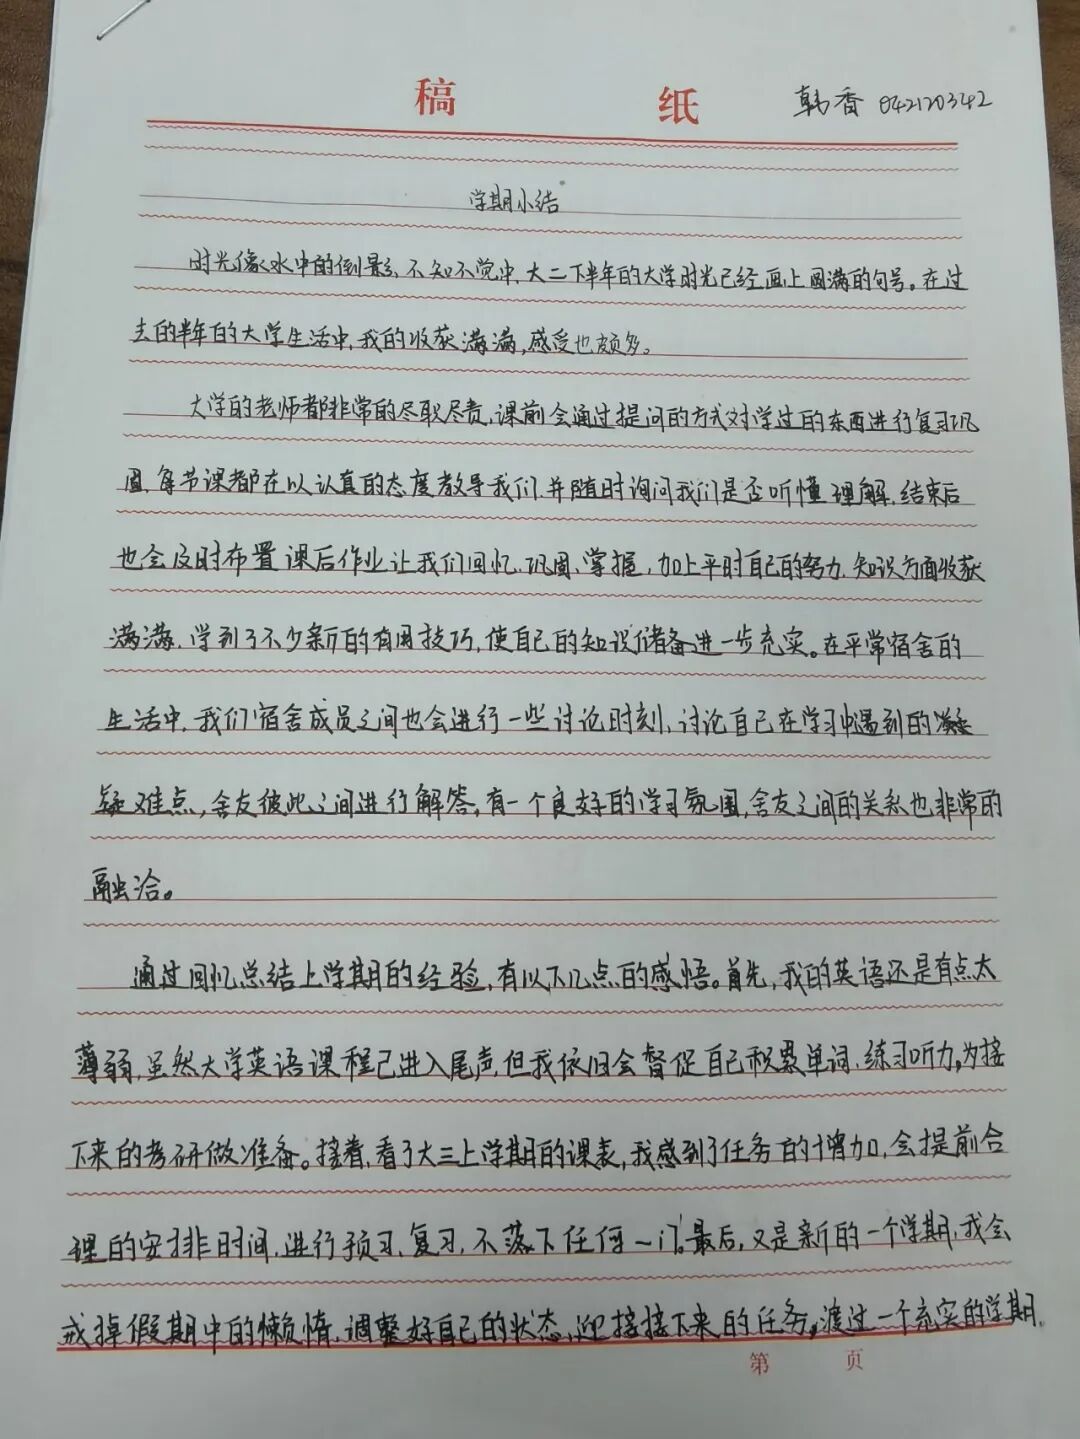 稿 纸 韩香 042120342
学期小结
时光像水中的倒影,不知不觉中,大二下半年的大学时光已经画上圆满的句号。在过
去的半年的大学生活中,我的收获满满,感受也颇多。
大学的老师都非常的尽职尽责,课前会通过提问的方式对学过的东西进行复习巩
固,每节课都在以认真的态度教导我们,并随时询问我们是否听懂理解,结束后
也会及时布置课后作业让我们回忆、巩固、掌握,加上平时自己的努力,知识方面收获
满满,学到了不少新的有用技巧,使自己的知识储备进一步充实。在平常宿舍的
生活中,我们宿舍成员之间也会进行一些讨论时刻,讨论自己在学习中遇到的
疑难点,舍友彼此之间进行解答,有一个良好的学习氛围,舍友之间的关系也非常的
融洽。
通过回忆总结上学期的经验,有以下几点的感悟。首先,我的英语还是有点太
薄弱,虽然大学英语课程已进入尾声,但我依旧会督促自己积累单词、练习听力,为接
下来的考研做准备。接着,看了大三上学期的课表,我感到了任务的增加,会提前合
理的安排时间,进行预习、复习,不落下任何一门。最后,又是新的一个学期,我会
戒掉假期中的懒惰,调整好自己的状态,迎接接下来的任务,渡过一个充实的学期。
第 页